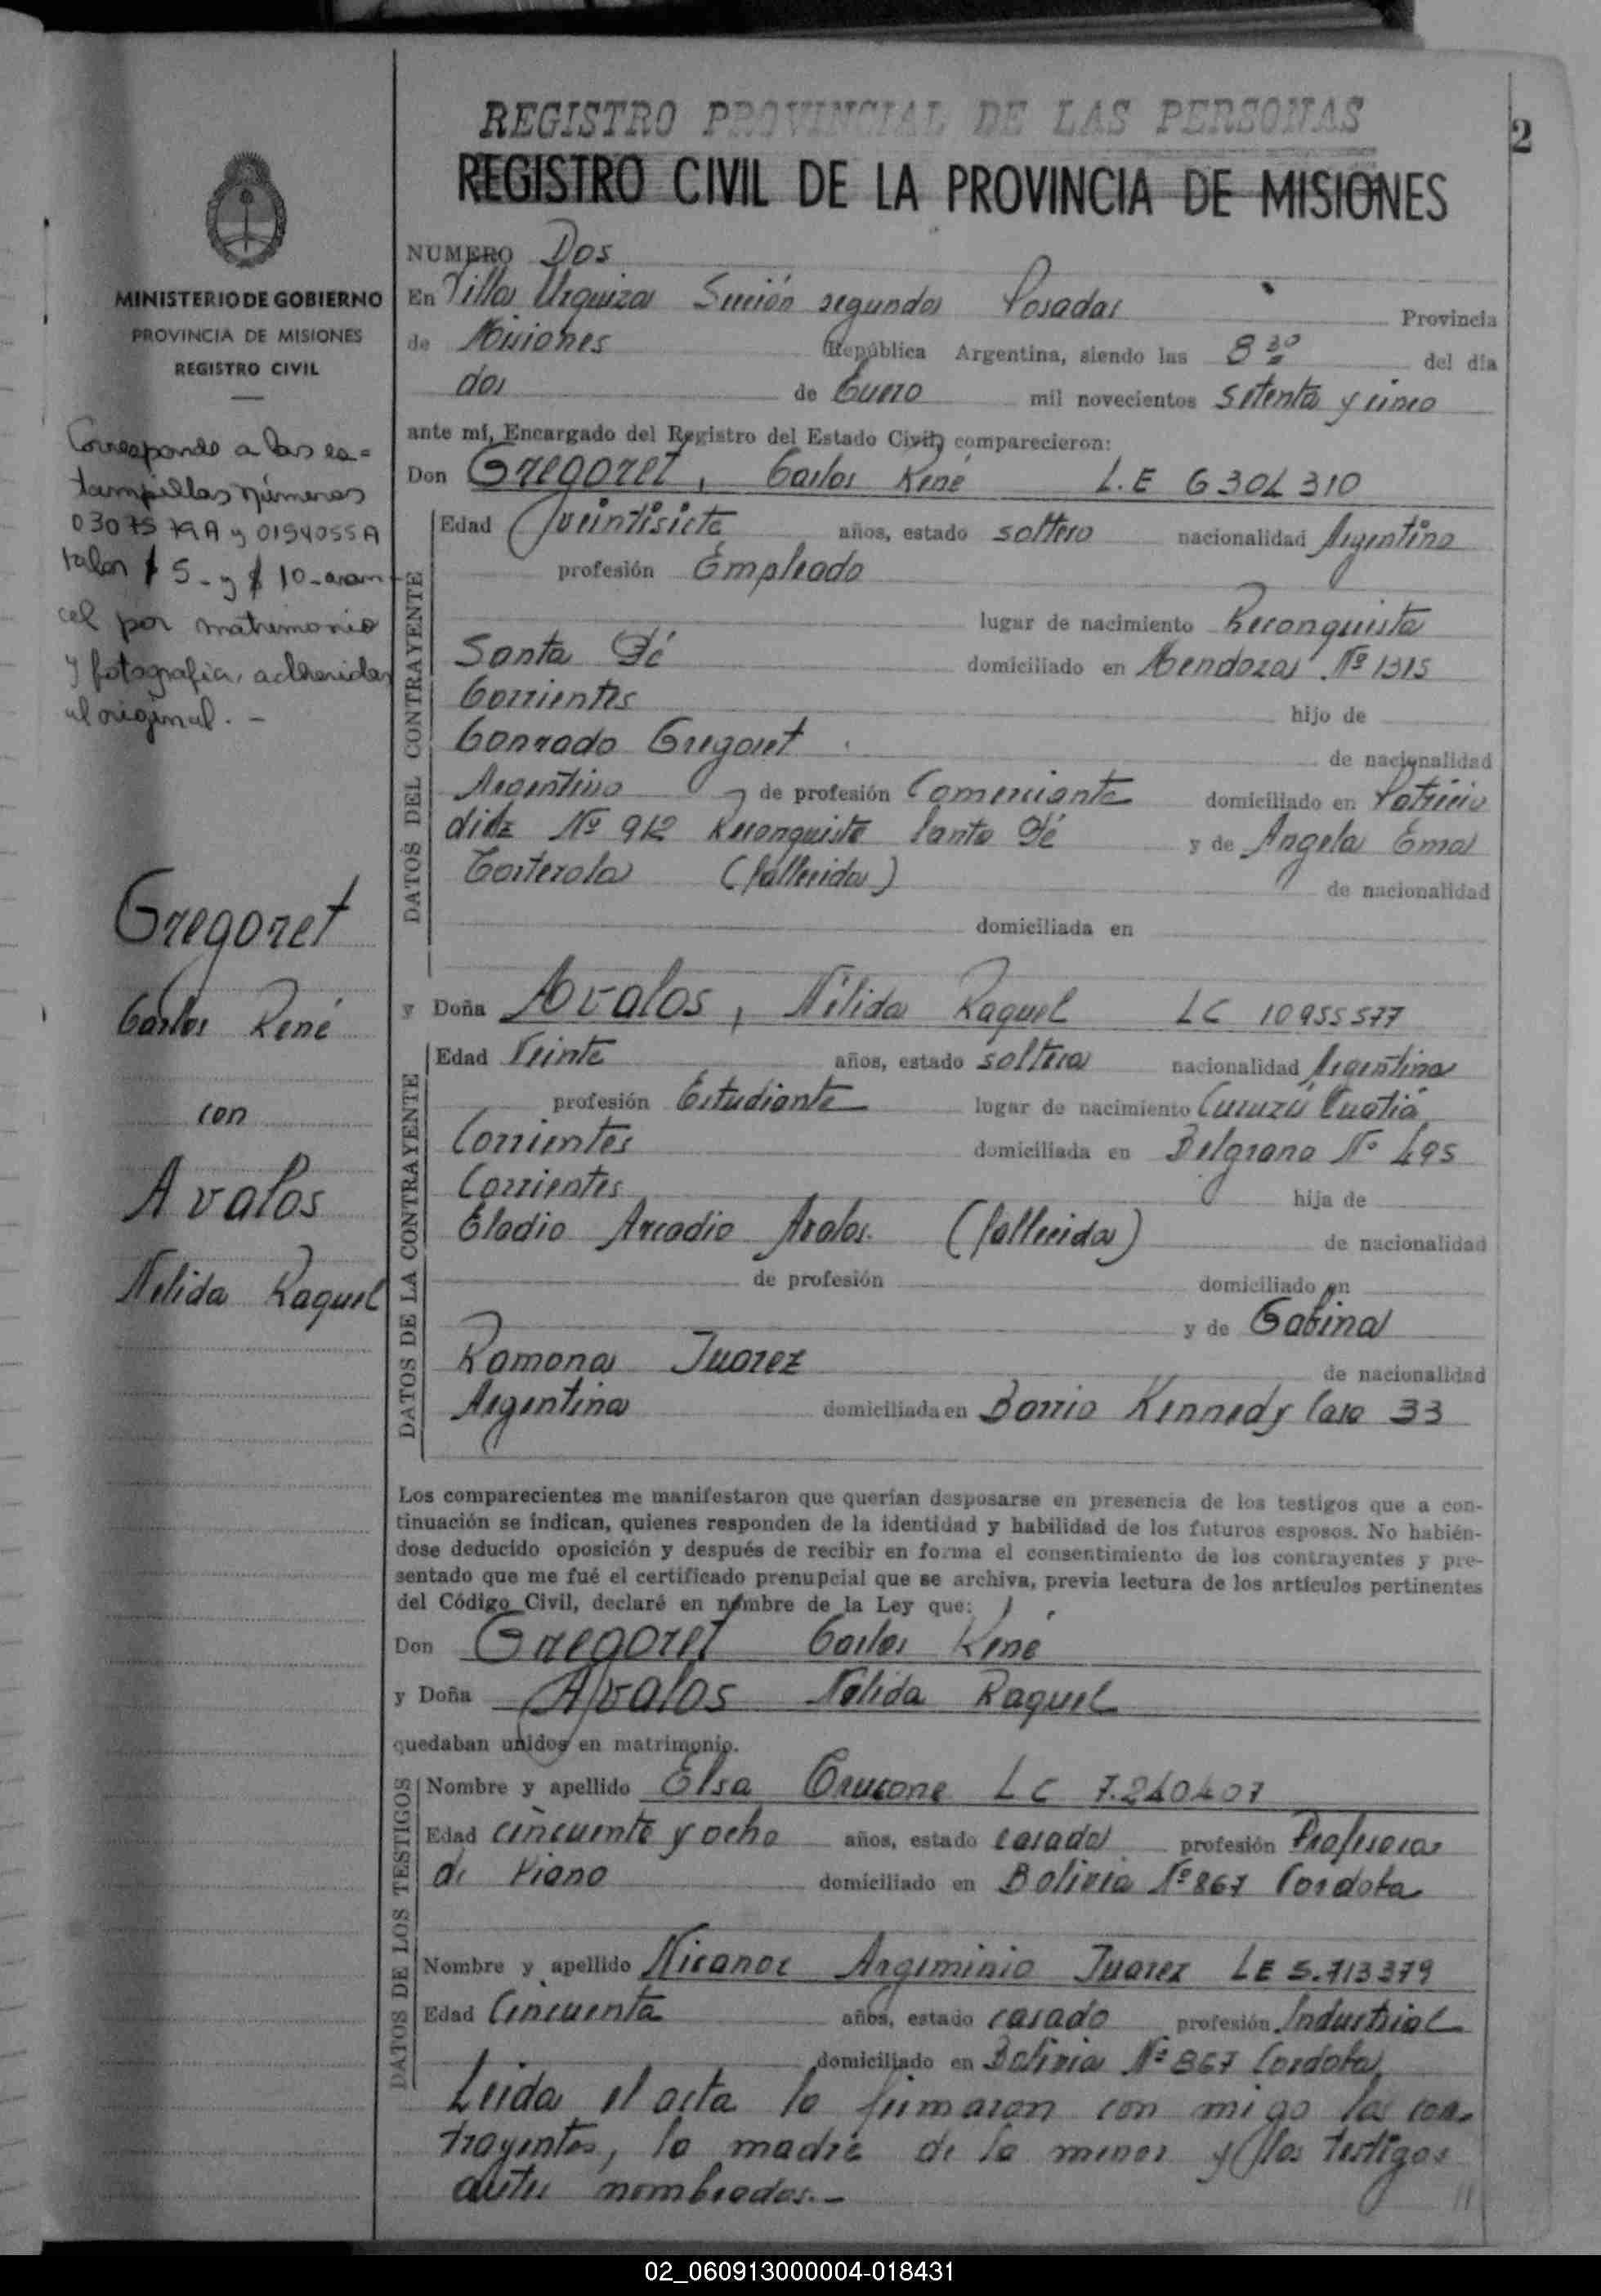 REGISTRO PROVINCIAL DE LAS PERSONAS
2
REGISTRO CIVIL DE LA PROVINCIA DE MISIONES
MINISTERIO DE GOBIERNO
PROVINCIA DE MISIONES
REGISTRO CIVIL
Corresponde a las es=
tampillas números
03075 79A y 0154055A
valor $ 5.- y $ 10.- aran
cel por matrimonio
y fotografia, adheridas
al original. -
Gregoret
Carlos René
con
Avalos
Nélida Raquel
NUMERO Dos
En Villa Urquiza Sección segunda Posadas Provincia
de Misiones República Argentina, siendo las 8 30 del día
dos de Enero mil novecientos Setenta y cinco
ante mí, Encargado del Registro del Estado Civil, comparecieron:
Don Gregoret, Carlos René L.E 6304310
DATOS DEL CONTRAYENTE
Edad Veintisiete años, estado soltero nacionalidad Argentina
profesión Empleado
lugar de nacimiento Reconquista
Santa Fé domiciliado en Mendoza Nº 1315
Corrientes hijo de
Conrado Gregoret de nacionalidad
Argentino de profesión Comerciante domiciliado en Patricio
diez Nº 912 Reconquista Santa Fé y de Angela Ema
Corterola (fallecida) de nacionalidad
domiciliada en
y Doña Avalos, Nélida Raquel LC 10955577
DATOS DE LA CONTRAYENTE
Edad Veinte años, estado soltera nacionalidad Argentina
profesión Estudiante lugar de nacimiento Curuzú Cuatiá
Corrientes domiciliada en Belgrano Nº 495
Corrientes hija de
Eladio Arcadio Avalos. (fallecida) de nacionalidad
de profesión domiciliado en
y de Gabina
Ramona Juarez de nacionalidad
Argentina domiciliada en Barrio Kennedy Casa 33
Los comparecientes me manifestaron que querían desposarse en presencia de los testigos que a con-
tinuación se indican, quienes responden de la identidad y habilidad de los futuros esposos. No habién-
dose deducido oposición y después de recibir en forma el consentimiento de los contrayentes y pre-
sentado que me fué el certificado prenupcial que se archiva, previa lectura de los artículos pertinentes
del Código Civil, declaré en nombre de la Ley que:
Don Gregoret Carlos René
y Doña Avalos Nélida Raquel
quedaban unidos en matrimonio.
DATOS DE LOS TESTIGOS
Nombre y apellido Elsa LC 7.240407
Edad cincuenta y ocho años, estado casada profesión Profesora
de Piano domiciliado en Bolivia Nº 867 Cordoba
Nombre y apellido Nicanor Argiminio Juarez LE 5.713379
Edad Cincuenta años, estado casado profesión Industrial
domiciliado en Bolivia Nº 867 Cordoba
Leida el acta la firmaron con migo los con-
trayentes, la madre de la menor y los testigos
antes nombrados.-
02_060913000004-018431